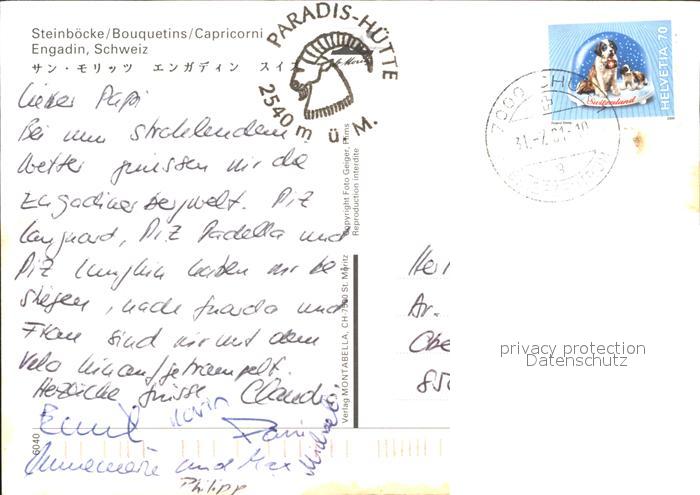 Steinböcke/Bouquetins/Capricorni
Engadin, Schweiz
サン・モリッツ エンガディン スイス
PARADIS-HÜTTE
2540 m ü. M.
HELVETIA 70
Switzerland
7000 CHUR
31.-7.01-10
Lieber Papi
Bei nun strahlendem
Wetter geniessen wir die
Engadiner Bergwelt. Piz
Languard, Piz Padella und
Piz Lunghin haben wir be
stiegen, nach Guarda und
Ftan sind wir mit dem
Velo hinaufgetrampelt.
Herzliche Grüsse Claudia
Emil Karin
Annemarie und Max Michael
Philipp
Copyright Foto Geiger, Flims
Reproduction interdite
Verlag MONTABELLA, CH-7500 St. Moritz
6040
Her
Ar.
Obe
850
privacy protection
Datenschutz